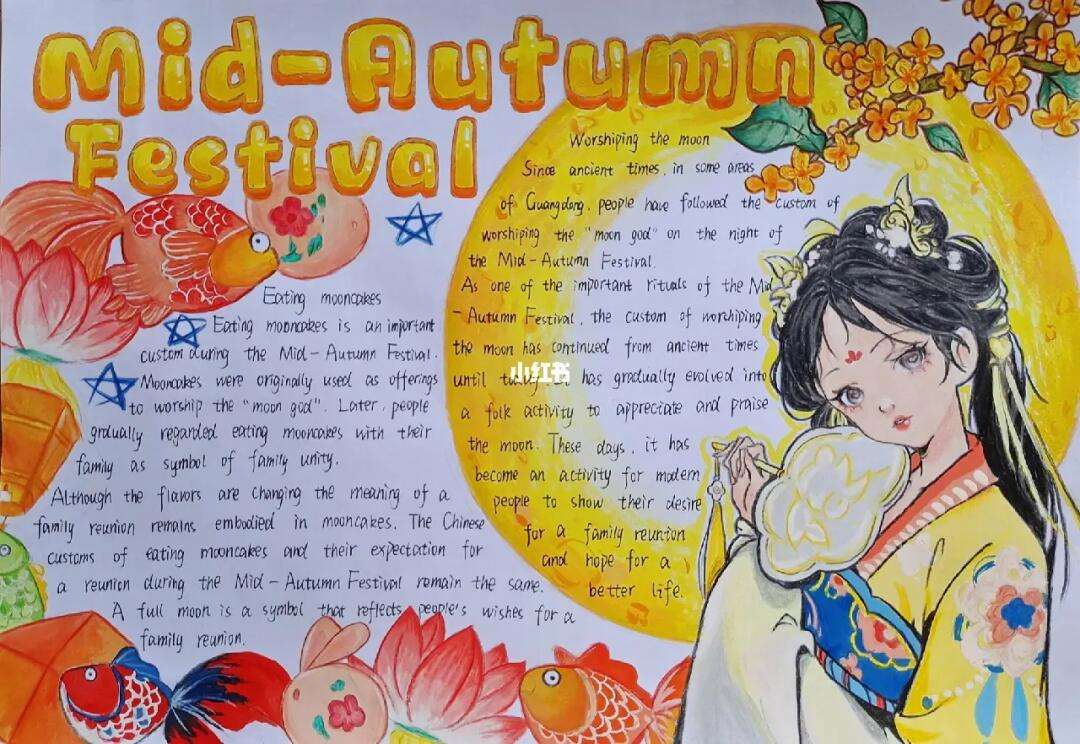 Mid-Autumn
Festival
Eating mooncakes
Eating mooncakes is an important
custom during the Mid-Autumn Festival.
Mooncakes were originally used as offerings
to worship the "moon god". Later, people
gradually regarded eating mooncakes with their
family as symbol of family unity.
Although the flavors are changing the meaning of a
family reunion remains embodied in mooncakes. The Chinese
customs of eating mooncakes and their expectation for
a reunion during the Mid-Autumn Festival remain the same.
A full moon is a symbol that reflects people's wishes for a
family reunion.
Worshiping the moon
Since ancient times, in some areas
of Guangdong, people have followed the custom of
worshiping the "moon god" on the night of
the Mid-Autumn Festival.
As one of the important rituals of the Mid
-Autumn Festival, the custom of worshiping
the moon has continued from ancient times
until has gradually evolved into
a folk activity to appreciate and praise
the moon. These days, it has
become an activity for modern
people to show their desire
for a family reunion
and hope for a
better life.
小红书